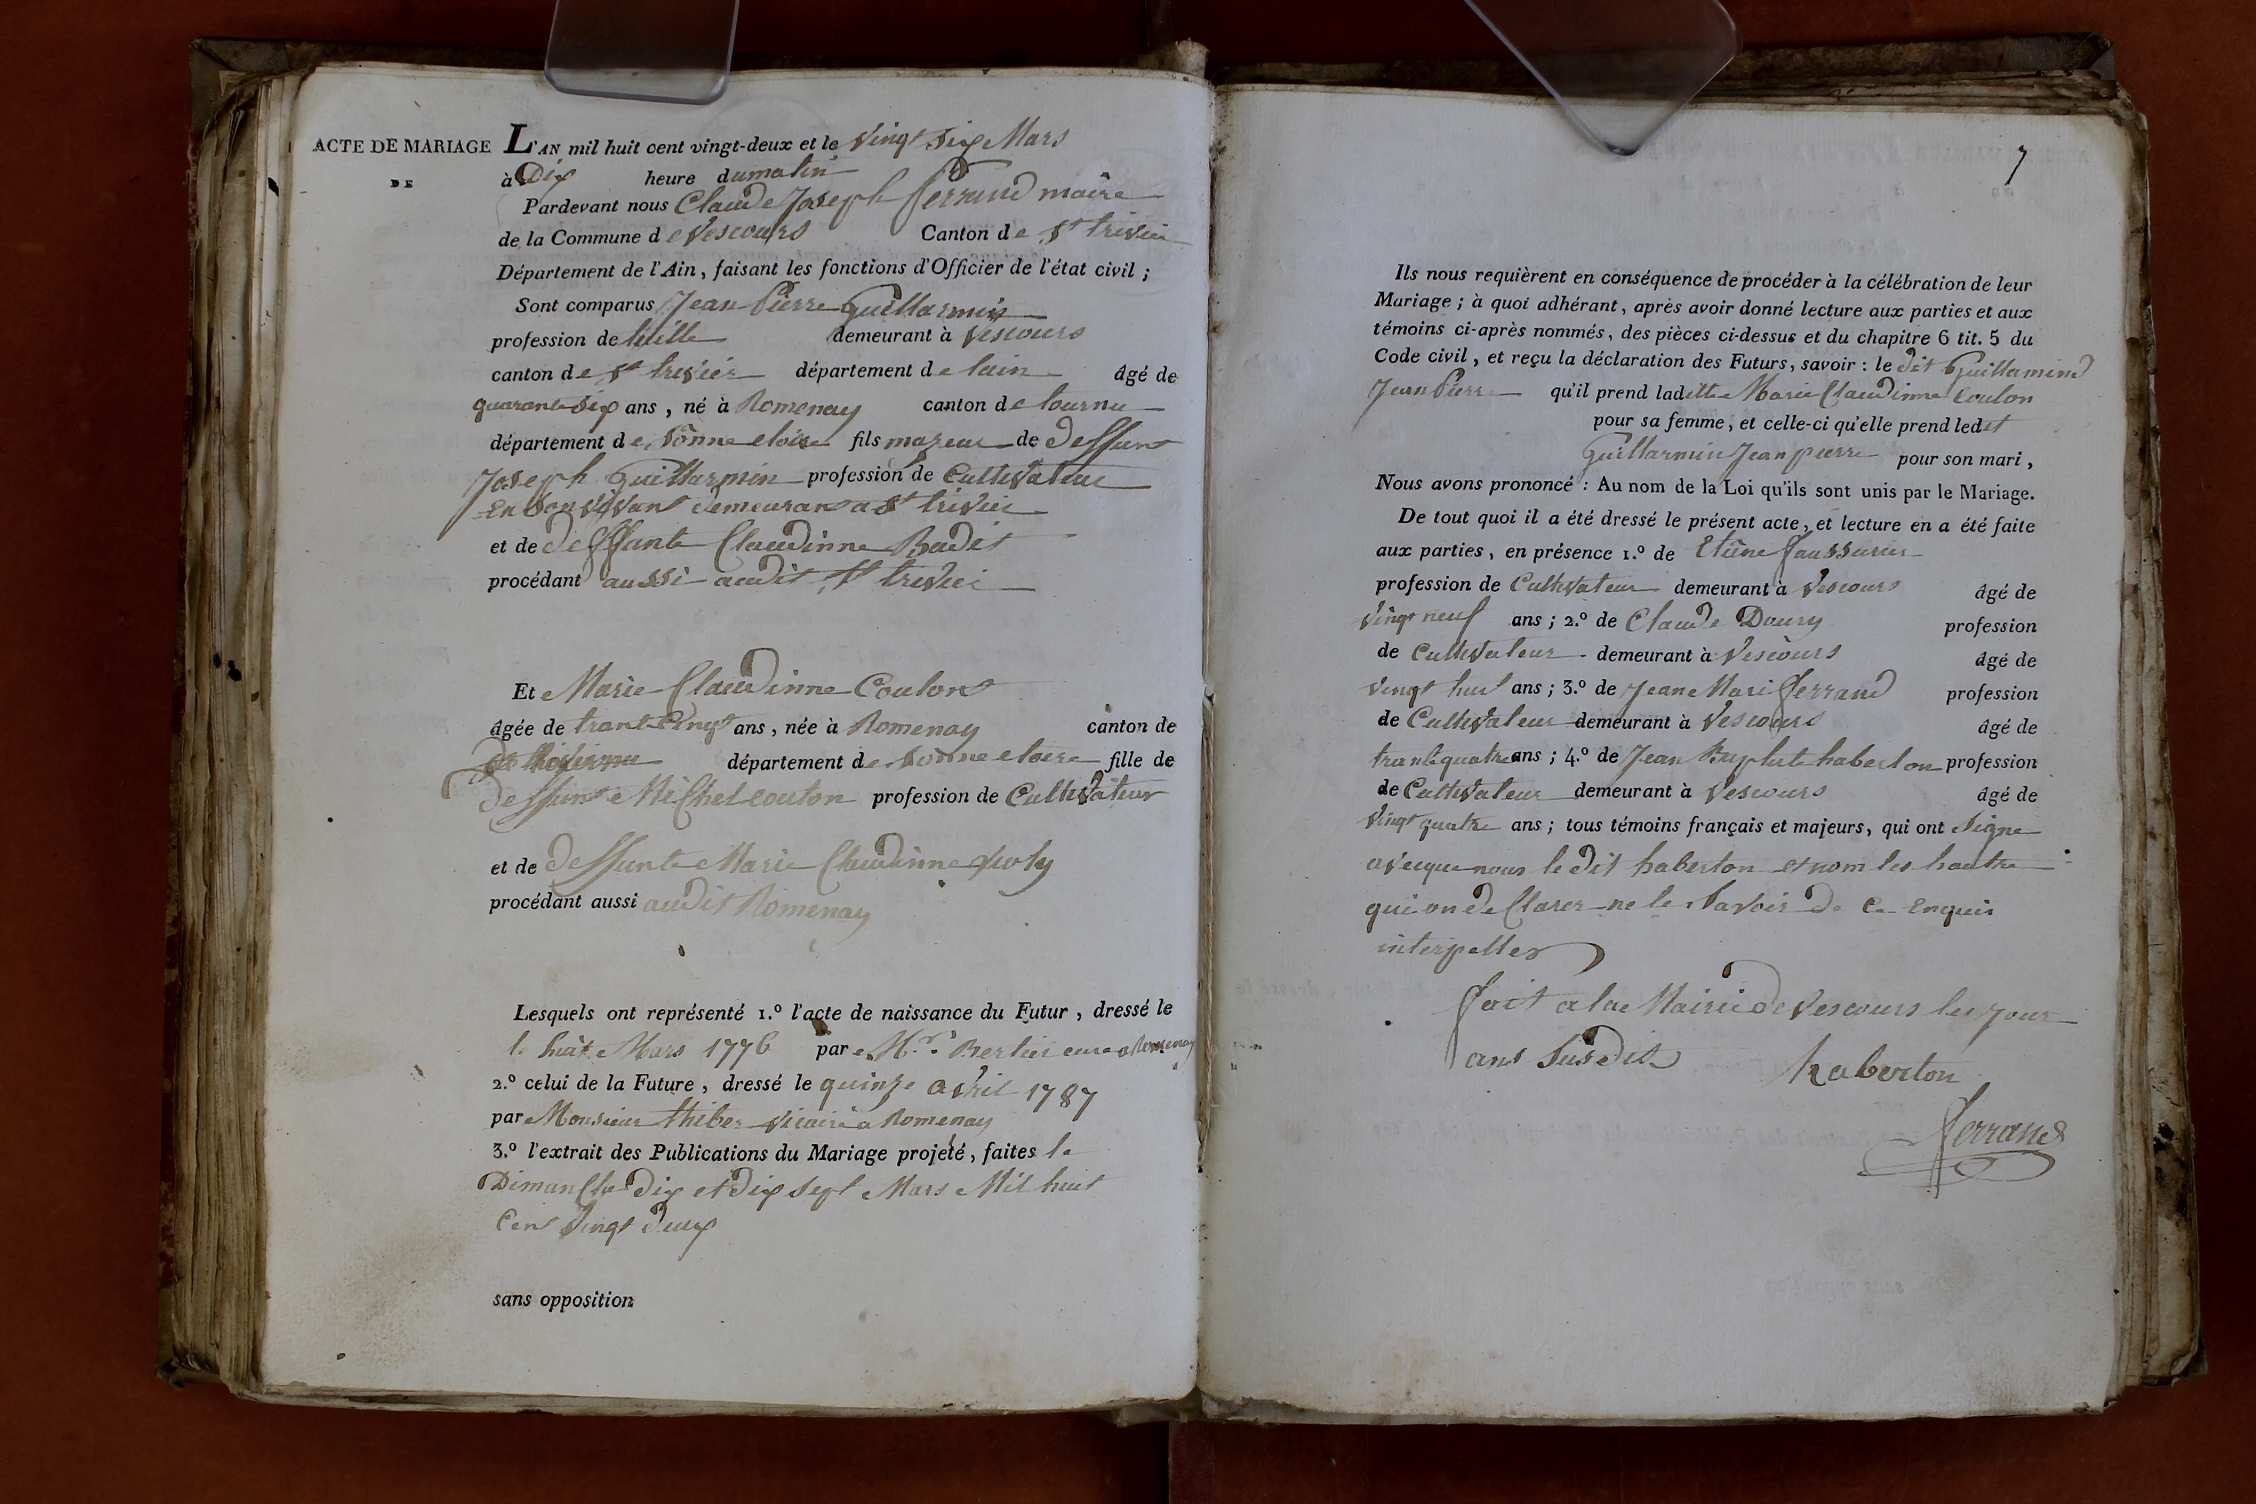 ACTE DE MARIAGE
DE
L'AN mil huit cent vingt-deux et le vingt six Mars
à Dix heure du matin
Pardevant nous Claude Joseph ferrand maire
de la Commune de Vescours Canton de St trivier
Département de l'Ain, faisant les fonctions d'Officier de l'état civil ;
Sont comparus Jean Pierre Guillarmin
profession de demeurant à Vescours
canton de St trivier département de lain âgé de
quarante six ans, né à Romenay canton de tournu
département de Sonne eloire fils majeur de deffunt
Joseph Guillarmin profession de Cultivateur
En Son vivant demeurant a St trivier
et de deffunte Claudinne Badit
procédant aussi audit St trivier
Et Marie Claudinne Coulon
âgée de trante cinq ans, née à Romenay canton de
département de Sonne eloire fille de
deffunt Michel couton profession de Cultivateur
et de deffunte Marie Claudinne
procédant aussi audit Romenay
Lesquels ont représenté 1.º l'acte de naissance du Futur, dressé le
le huit Mars 1776 par Mr. Bertier cure a Romenay
2.º celui de la Future, dressé le quinze avril 1787
par Monsieur thiber vicaire a Romenay
3.º l'extrait des Publications du Mariage projeté, faites le
Dimanche dix et dix sept Mars Mil huit
Cent vingt deux
sans opposition
7
Ils nous requièrent en conséquence de procéder à la célébration de leur
Mariage ; à quoi adhérant, après avoir donné lecture aux parties et aux
témoins ci-après nommés, des pièces ci-dessus et du chapitre 6 tit. 5 du
Code civil, et reçu la déclaration des Futurs, savoir : le dit Guillamind
Jean Pierre qu'il prend laditte Marie Claudinne Coulon
pour sa femme, et celle-ci qu'elle prend ledit
Guillarmin Jean pierre pour son mari,
Nous avons prononcé : Au nom de la Loi qu'ils sont unis par le Mariage.
De tout quoi il a été dressé le présent acte, et lecture en a été faite
aux parties, en présence 1.º de Etiene faussurier
profession de Cultivateur demeurant à Vescours âgé de
vingt neuf ans ; 2.º de Claude Doury profession
de Cultivateur demeurant à Vescours âgé de
vingt huit ans ; 3.º de Jean Mari ferrand profession
de Cultivateur demeurant à Vescours âgé de
trante quatre ans ; 4.º de Jean Baptiste haberton profession
de Cultivateur demeurant à Vescours âgé de
vingt quatre ans ; tous témoins français et majeurs, qui ont Signe
avecque nous le dit haberton et nom les hautre
qui on de Clarer ne le Savoir de Ce Enquis
interpeller
fait a la Mairie de Vescours les jour
ans Susedit
haberton
ferrand